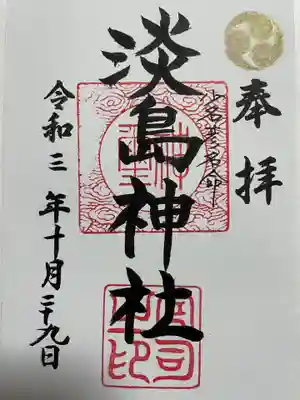 奉拝
少名毘古那命
淡島神社
令和三年十月二十九日